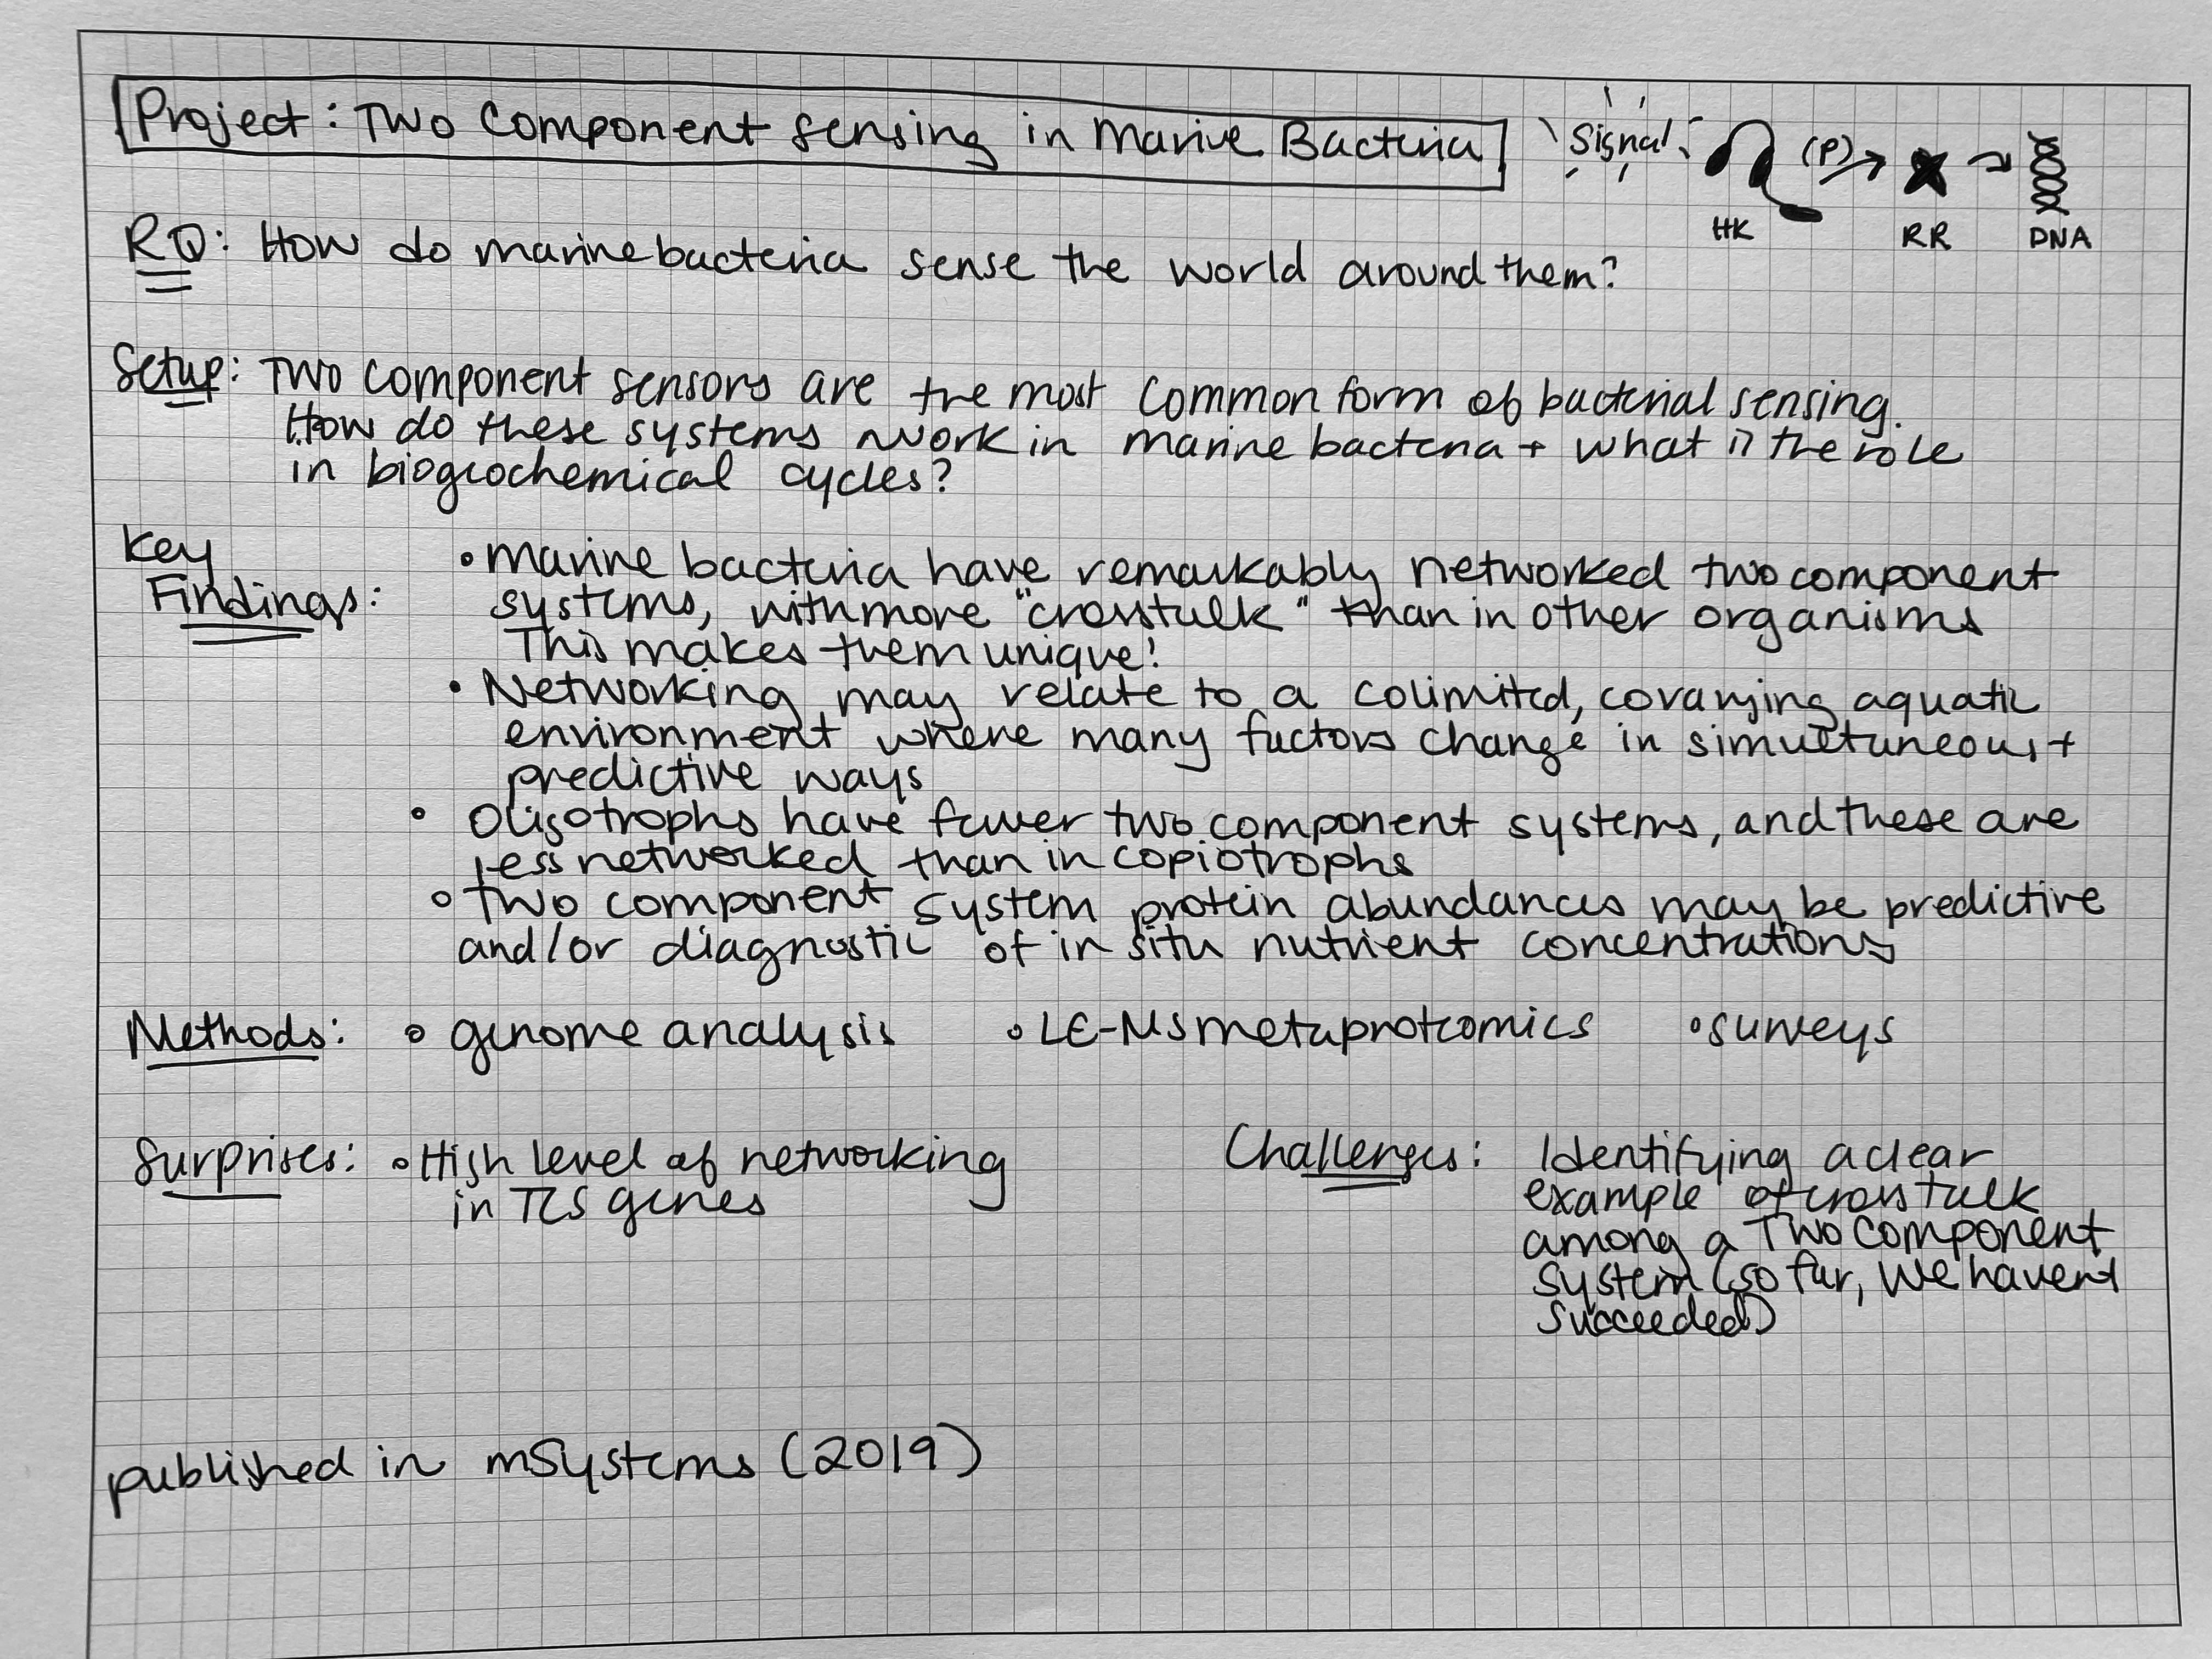 Project: Two Component Sensing in Marine Bacteria
Signal
(P)
HK
RR
DNA
RQ: How do marine bacteria sense the world around them?
Setup: Two component sensors are the most common form of bacterial sensing.
How do these systems work in marine bacteria + what is the role
in biogeochemical cycles?
Key
Findings:
• Marine bacteria have remarkably networked two component
systems, with more "crosstalk" than in other organisms
This makes them unique!
• Networking may relate to a colimited, covarying aquatic
environment where many factors change in simultaneous +
predictive ways
• Oligotrophs have fewer two component systems, and these are
less networked than in copiotrophs
• Two component system protein abundances may be predictive
and/or diagnostic of in situ nutrient concentrations
Methods: • genome analysis • LC-MS metaproteomics • surveys
Surprises: • High level of networking
in TCS genes
Challenges: Identifying a clear
example of cross talk
among a Two Component
System (so far, we havent
succeeded)
published in mSystems (2019)